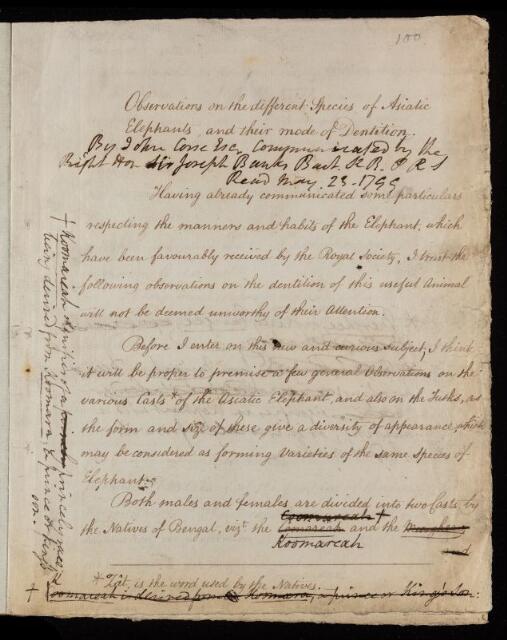 100
Observations on the different Species of Asiatic
Elephants, and their mode of Dentition.
By John Corse Esq. Communicated by the
Right Hon Sir Joseph Banks Bart. K B. P R S
Read May. 23. 1799
Having already communicated some particulars
respecting the manners and habits of the Elephant, which
have been favourably received by the Royal Society, I trust the
following observations on the dentition of this useful Animal
will not be deemed unworthy of their Attention.
Before I enter on this new and curious subject, I think
it will be proper to premise a few general Observations on the
various Casts* of the Asiatic Elephant, and also on the Tusks, as
the form and size of these give a diversity of appearance, which
may be considered as forming Varieties of the same Species of
Elephant.
Both males and females, are divided into two Casts, by
Coomareah †
the Natives of Bengal, vizt. the Comareah and the
Koomareah
* Zat, is the word used by the Natives.
† Coomareah is derived from Koomara, a prince or King's Son.
† Koomareah signifies of a princely race,
being derived from Koomara a prince or King's
son.